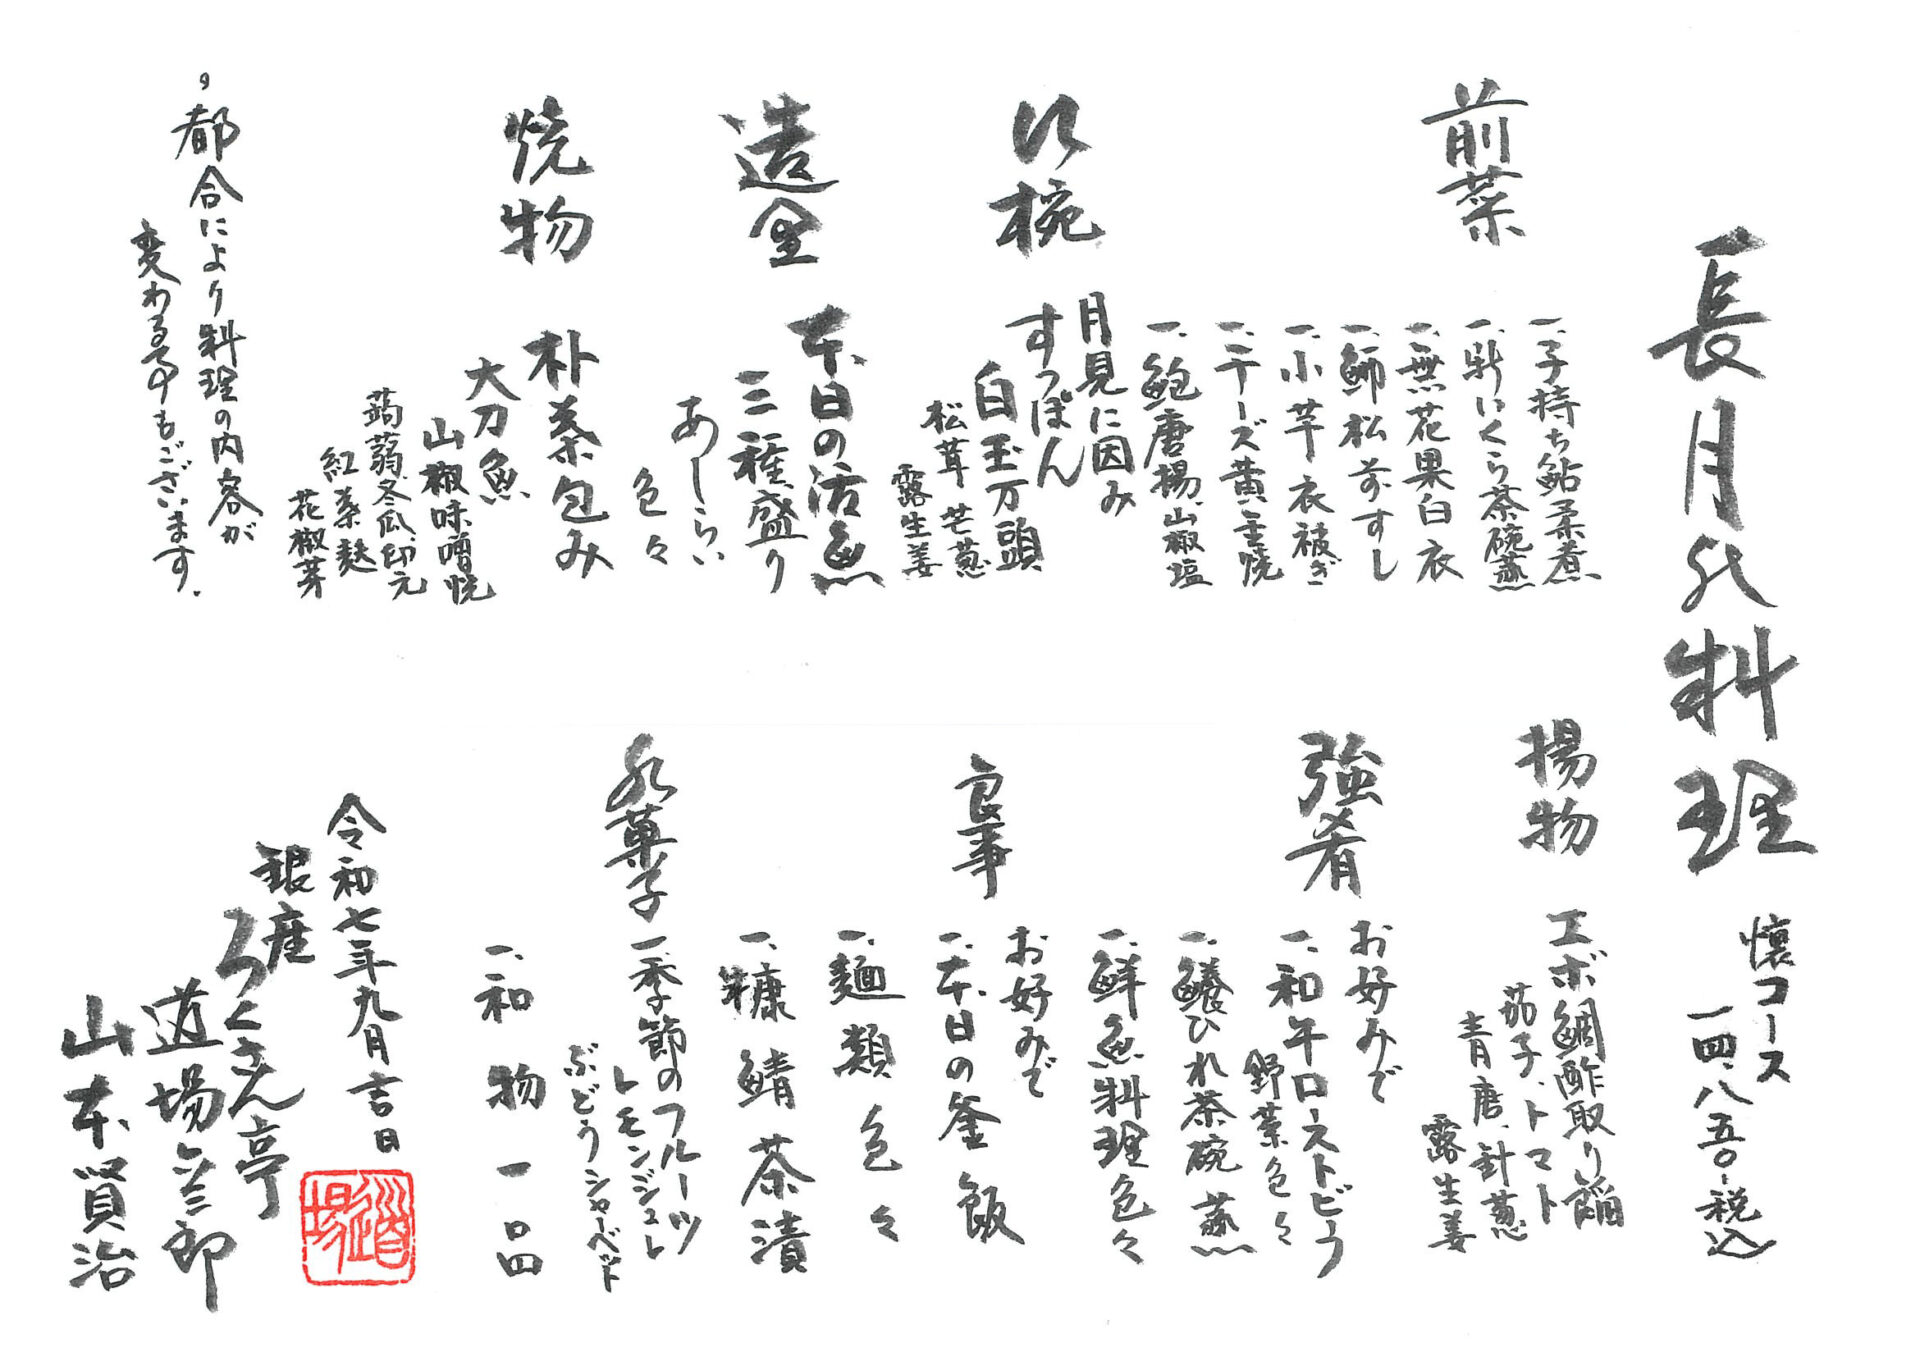 長月の料理
懐コース
一四、八五〇-税込
前菜
一、子持ち鮎柔煮
一、新いくら茶碗蒸
一、無花果白衣
一、鰤松前すし
一、小芋衣被ぎ
一、チーズ黄金焼
一、鮑唐揚、山椒塩
吸椀
月見に因み
すっぽん
白玉万頭
松茸 芒葱
露生姜
造里
本日の活魚
三種盛り
あしらい
色々
焼物
朴葉包み
大刀魚
山椒味噌焼
蒟蒻、冬瓜、印元
紅葉麩
花椒芽
・都合により料理の内容が
変わる事もございます。
揚物
エボ鯛酢取り餡
茄子、トマト
青唐、針葱
露生姜
強肴
お好みで
一、和牛ローストビーフ
野菜色々
一、鱶ひれ茶碗蒸
一、鮮魚料理色々
食事
お好みで
一、本日の釜飯
一、麺類色々
一、糠鯖茶漬
水菓子
一、季節のフルーツ
レモンジュレ
ぶどうシャーベット
一、和物一品
令和七年九月吉日
銀座
ろくさん亭
道場六三郎
山本賢治
道場